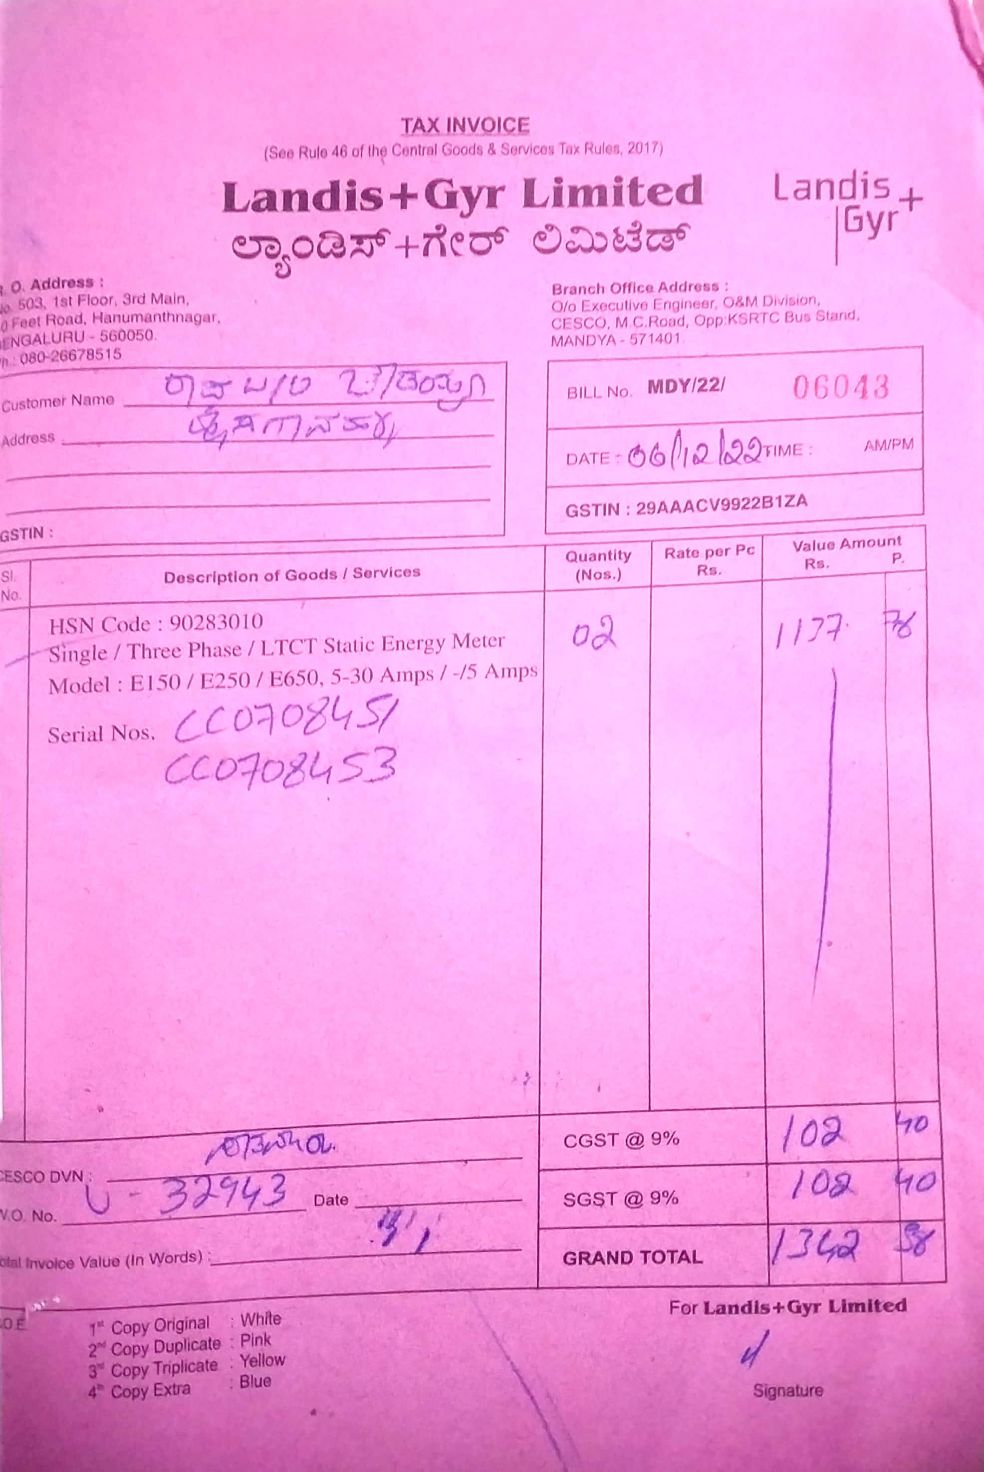 TAX INVOICE
(See Rule 46 of the Central Goods & Services Tax Rules, 2017)
Landis+Gyr Limited
ಲ್ಯಾಂಡಿಸ್+ಗೇರ್ ಲಿಮಿಟೆಡ್
Landis+
Gyr
. O. Address :
503, 1st Floor, 3rd Main,
Feet Road, Hanumanthnagar,
ENGALURU - 560050.
: 080-26678515
Branch Office Address :
O/o Executive Engineer, O&M Division,
CESCO, M.C.Road, Opp:KSRTC Bus Stand,
MANDYA - 571401.
Customer Name
Address
GSTIN :
BILL No. MDY/22/ 06043
DATE : 06/12/22 TIME : AM/PM
GSTIN : 29AAACV9922B1ZA
Sl. No. Description of Goods / Services Quantity (Nos.) Rate per Pc Rs. Value Amount Rs. P.
HSN Code : 90283010
Single / Three Phase / LTCT Static Energy Meter 02 1137 78
Model : E150 / E250 / E650, 5-30 Amps / -/5 Amps
Serial Nos. CC0708451
CC0708453
CGST @ 9% 102 40
CESCO DVN :
SGST @ 9% 102 40
W.O. No. U - 32943 Date
GRAND TOTAL 1342 58
otal Invoice Value (In Words) :
1st Copy Original : White
2nd Copy Duplicate : Pink
3rd Copy Triplicate : Yellow
4th Copy Extra : Blue
For Landis+Gyr Limited
Signature